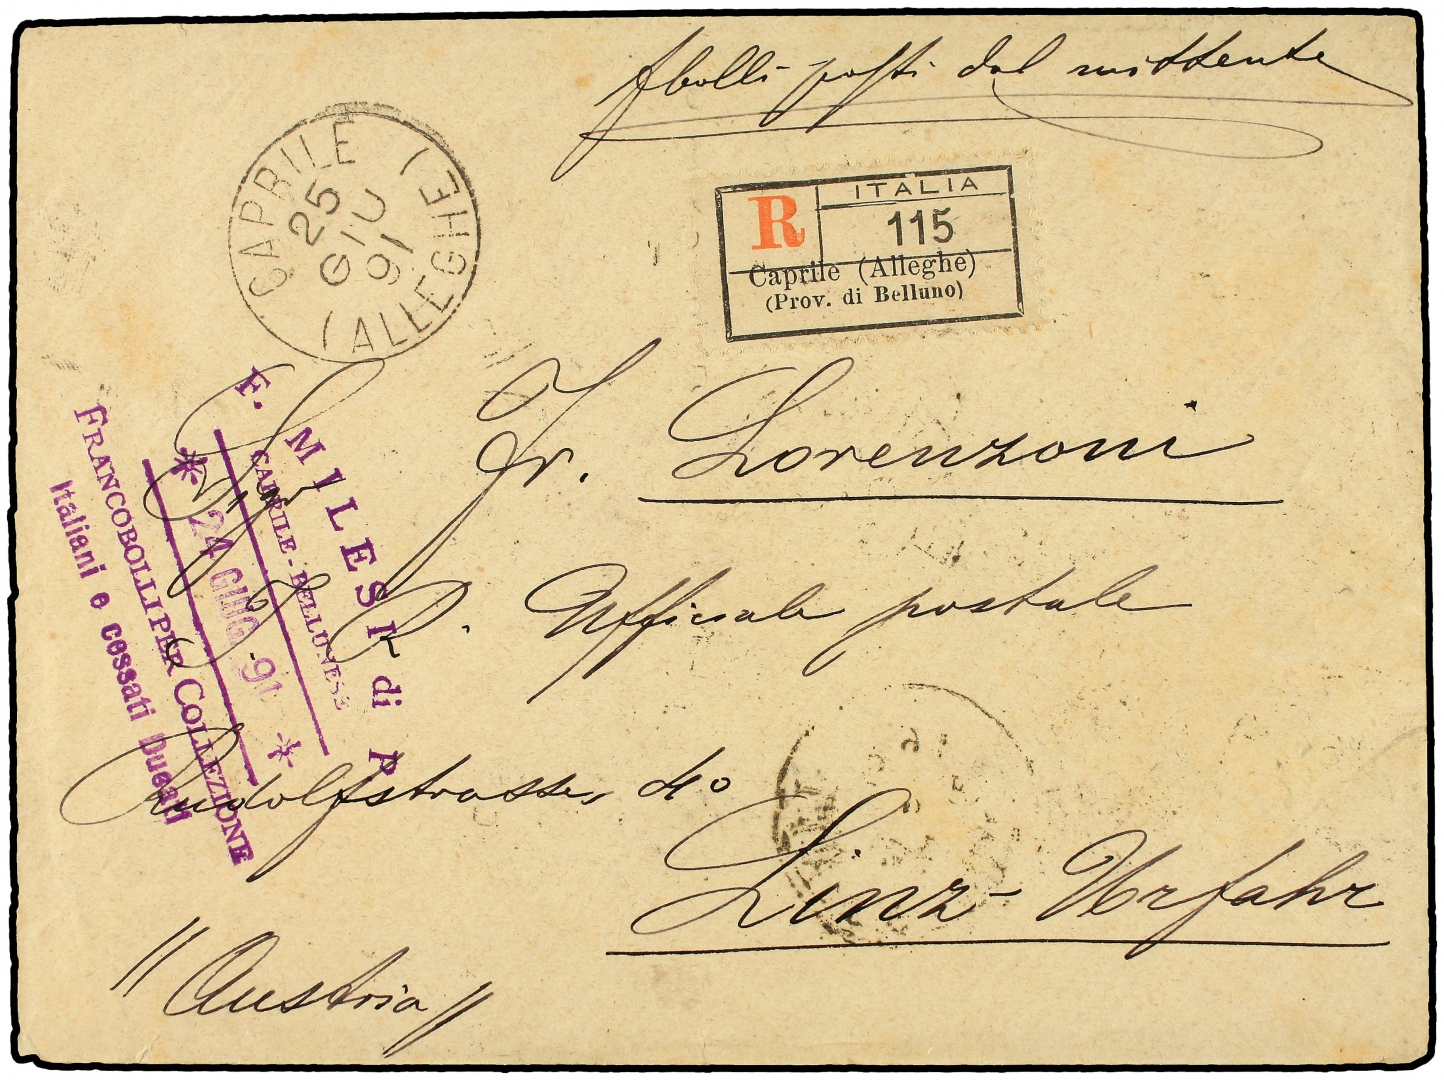 fbolli posti dal mittente
CAPRILE (ALLEGHE)
25
GIU
91
R
ITALIA
115
Caprile (Alleghe)
(Prov. di Belluno)
F. MILESI di P
CAPRILE-BELLUNESE
* 24 GIUG. 91 *
FRANCOBOLLI PER COLLEZIONE
Italiani e cessati Ducati
Sigr Fr. Lorenzoni
I. R. Ufficiale postale
Rudolfstrasse, 40
Linz-Urfahr
"Austria"